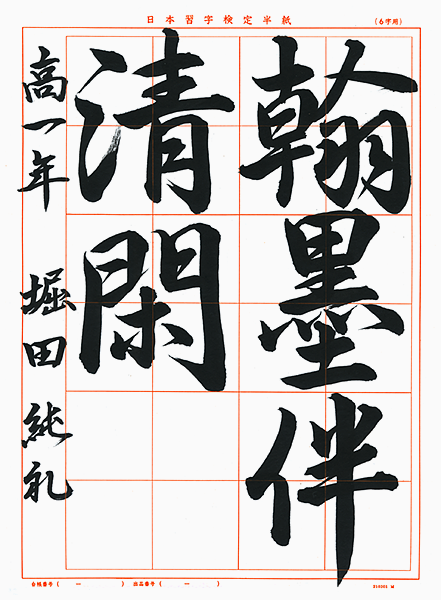 日本習字検定半紙
(6字用)
翰墨伴
清閑
高一年 堀田純礼
台帳番号( ー ) 出品番号( ー )